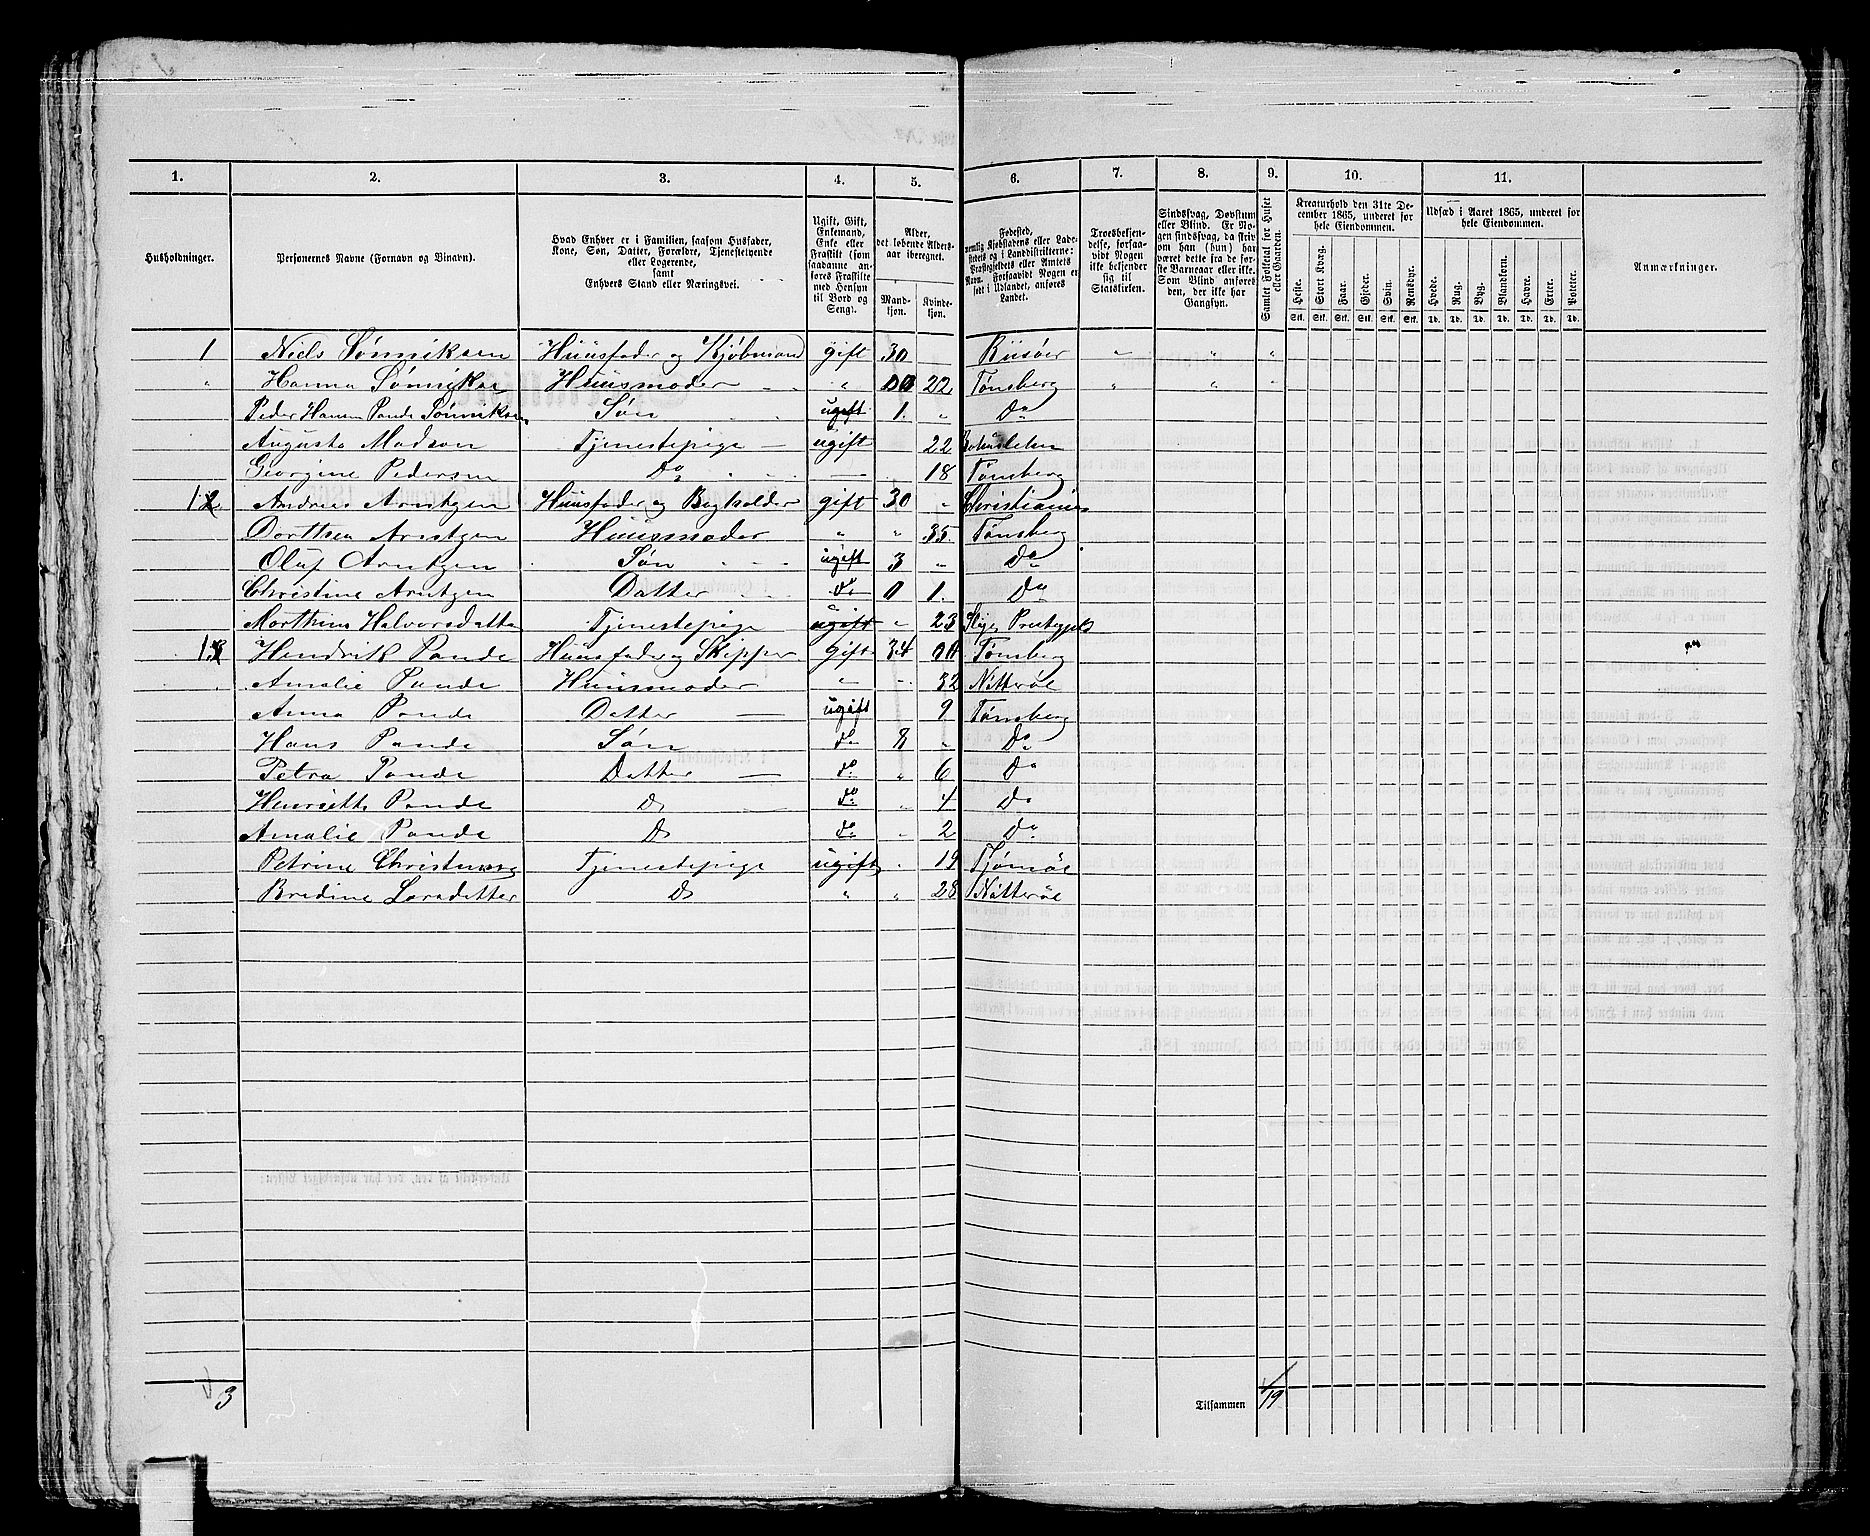 1. 2. 3. 4. 5. 6. 7. 8. 9. 10. 11.
Husholdninger.
Personernes Navne (Fornavn og Binavn).
Hvad Enhver er i Familien, saasom Husfader,
Kone, Søn, Datter, Forældre, Tjenestetyende
eller Logerende,
samt
Enhvers Stand eller Næringsvei.
Ugift, Gift,
Enkemand,
Enke eller
Fraskilt (som
saadanne an-
føres Fraskilte
med Hensyn
til Bord og
Seng).
Alder,
det løbende Alders-
aar iberegnet.
Mand-
kjøn.
Kvinde-
kjøn.
Fødested,
nemlig Kjøbstadens eller Lade-
stedets og i Landdistrikterne:
Præstegjeldets eller Amtets
Navn. Forsaavidt Nogen er
født i Udlandet, anføres
Landet.
Troesbekjen-
delse, forsaa-
vidt Nogen
ikke bekjender
sig til
Statskirken.
Sindssvag, Døvstum
eller Blind. Er No-
gen sindssvag, da skriv
om han (hun) har
været dette fra de før-
ste Barneaar eller ikke.
Som Blind anføres
den, der ikke har
Gangsyn.
Samlet Folketal for Huset
eller Gaarden.
Kreaturhold den 31te De-
cember 1865, underet for
hele Eiendommen.
Heste. Stort Kvæg. Faar. Gjeder. Svin. Rensdyr.
Stk. Stk. Stk. Stk. Stk. Stk.
Udsæd i Aaret 1865, underet for
hele Eiendommen.
Hvede. Rug. Byg. Blandkorn. Havre. Erter. Poteter.
Td. Td. Td. Td. Td. Td. Td.
Anmærkninger.
1 Niels Sønniksen Huusfader og Kjøbmand gift 30 Riisøer " " "
" Hanna Sønniksen Huusmoder " 22 Tønsberg " " "
Peder Hansen Pande Sønniksen Søn ugift 1. " Do
Augusta Madsen Tjenestepige ugift 22 Bohuslehn
Georgine Pedersen Do 18 Tønsberg
2 Andreas Arntzen Huusfader og Bogholder gift 30 " Christiania
Dorthea Arntzen Huusmoder " " 35. Tønsberg
Oluf Arntzen Søn ugift 3 " Do
Christine Arntzen Datter do 0 1. Do
Marthine Halvorsdatter Tjenestepige ugift " 23 Prestegjeld
3 Hendrik Pande Huusfader og Skipper gift 34 Tønsberg
Amalie Pande Huusmoder " 32 Nøtterøe
Anna Pande Datter ugift 9 Tønsberg
Hans Pande Søn do 8 " Do
Petra Pande Datter do " 6 Do
Henriette Pande Do do " 4 Do
Amalie Pande Do do " 2 Do
Petrine Tjenestepige ugift " 19 Tjømøe
Bredine Larsdatter Do " " 28 Nøtterøe
3 Tilsammen 19